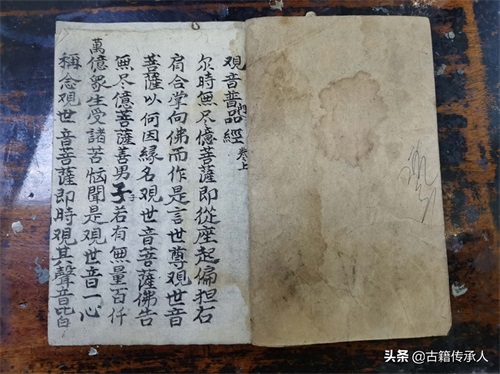 观音普門品經 卷上
尔時無尽億菩薩即從座起偏担右
肩合掌向佛而作是言世尊观世音
菩薩以何因緣名观世音菩薩佛告
無尽億菩薩善男子若有無量百仟
萬億衆生受諸苦惱聞是观世音一心
稱念观世音菩薩即時观其聲音皆
头条 @古籍传承人